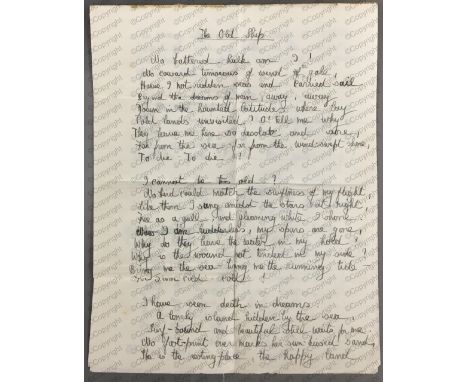 The Old Ship
No battered hulk am I!
No coward timorous of wind or gale,
Have I not ridden seas and carried sail
Beyond the dreams of men, away, away
Down in the haunted latitudes where lay
lands unvisited? O! tell me why
They leave me here so desolate and alone,
Far from the sea - far from the wind-swept shore,
To die To die ?!
I cannot be too old ?
No bird could match the swiftness of my flight,
Like them I sang amidst the stars at night!
free as a gull and gleaming white I shone!
Now I am rudderless, my spars are gone,
Why do they leave the water in my hold?
Why is the wound not tended in my side?
Bring me the sea - bring me the running tide -
cold!
I have seen death in dreams:
A lonely island hidden by the sea,
Reef-bound and beautiful still waits for me.
No foot-print ever marks her sun-kissed sand,
She is the resting-place, the happy land
©Copyright